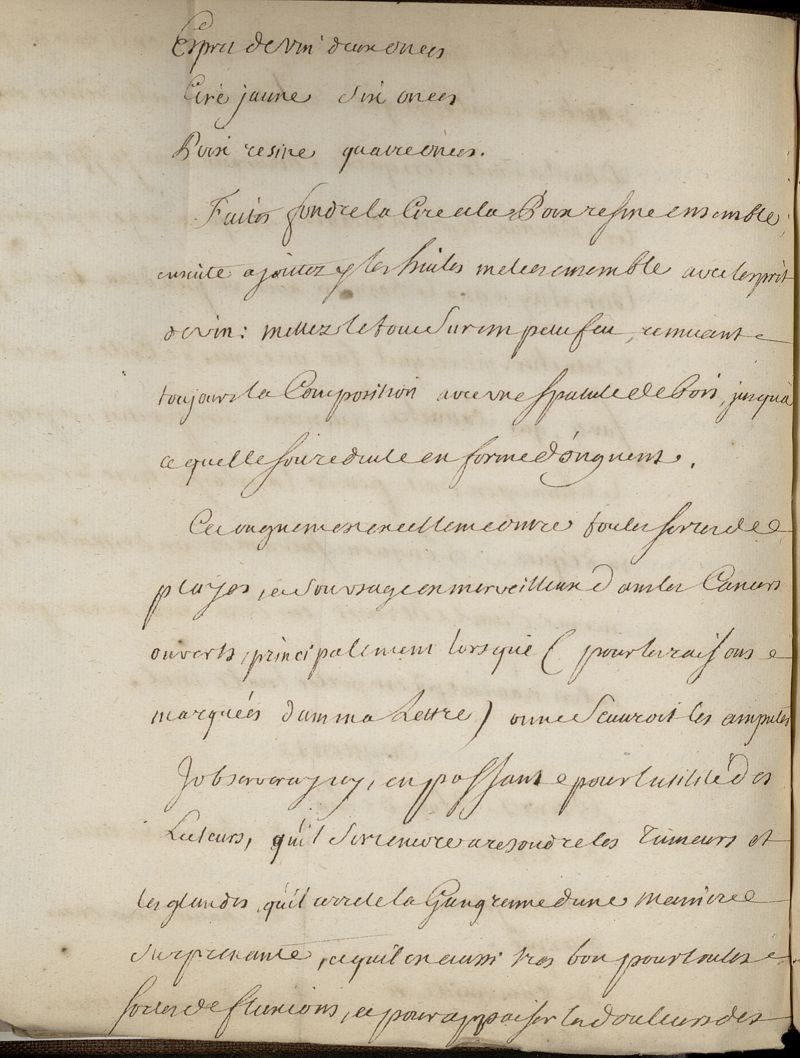 Esprit de vin deux onces
Cire jaune six onces
Poix resine quatre onces.
Faites fondre la Cire et la Poix resine ensemble,
ensuite ajoutez y les huiles melées ensemble avec lesprit
de vin: mettez le tout sur un petit feu, remuant
toujours la Composition avec une spatule de bois, jusqu'à
ce quelle soit reduite en forme d'onguent.
Cet onguent est excellent contre toutes sortes de
playes, et son usage est merveilleux dans les Cancers
ouverts, principalement lorsque (pour les raisons
marquées dans ma Lettre) on ne scauroit les amputer
J'observeray icy, en passant pour l'utilité des
Lecteurs, qu'il sert encore a resoudre les Tumeurs et
les glandes, qu'il arrete la Gangrenne d'une maniere
surprenante, et qu'il est aussi tres bon pour toutes
sortes de fluxions, et pour appaiser les douleurs des